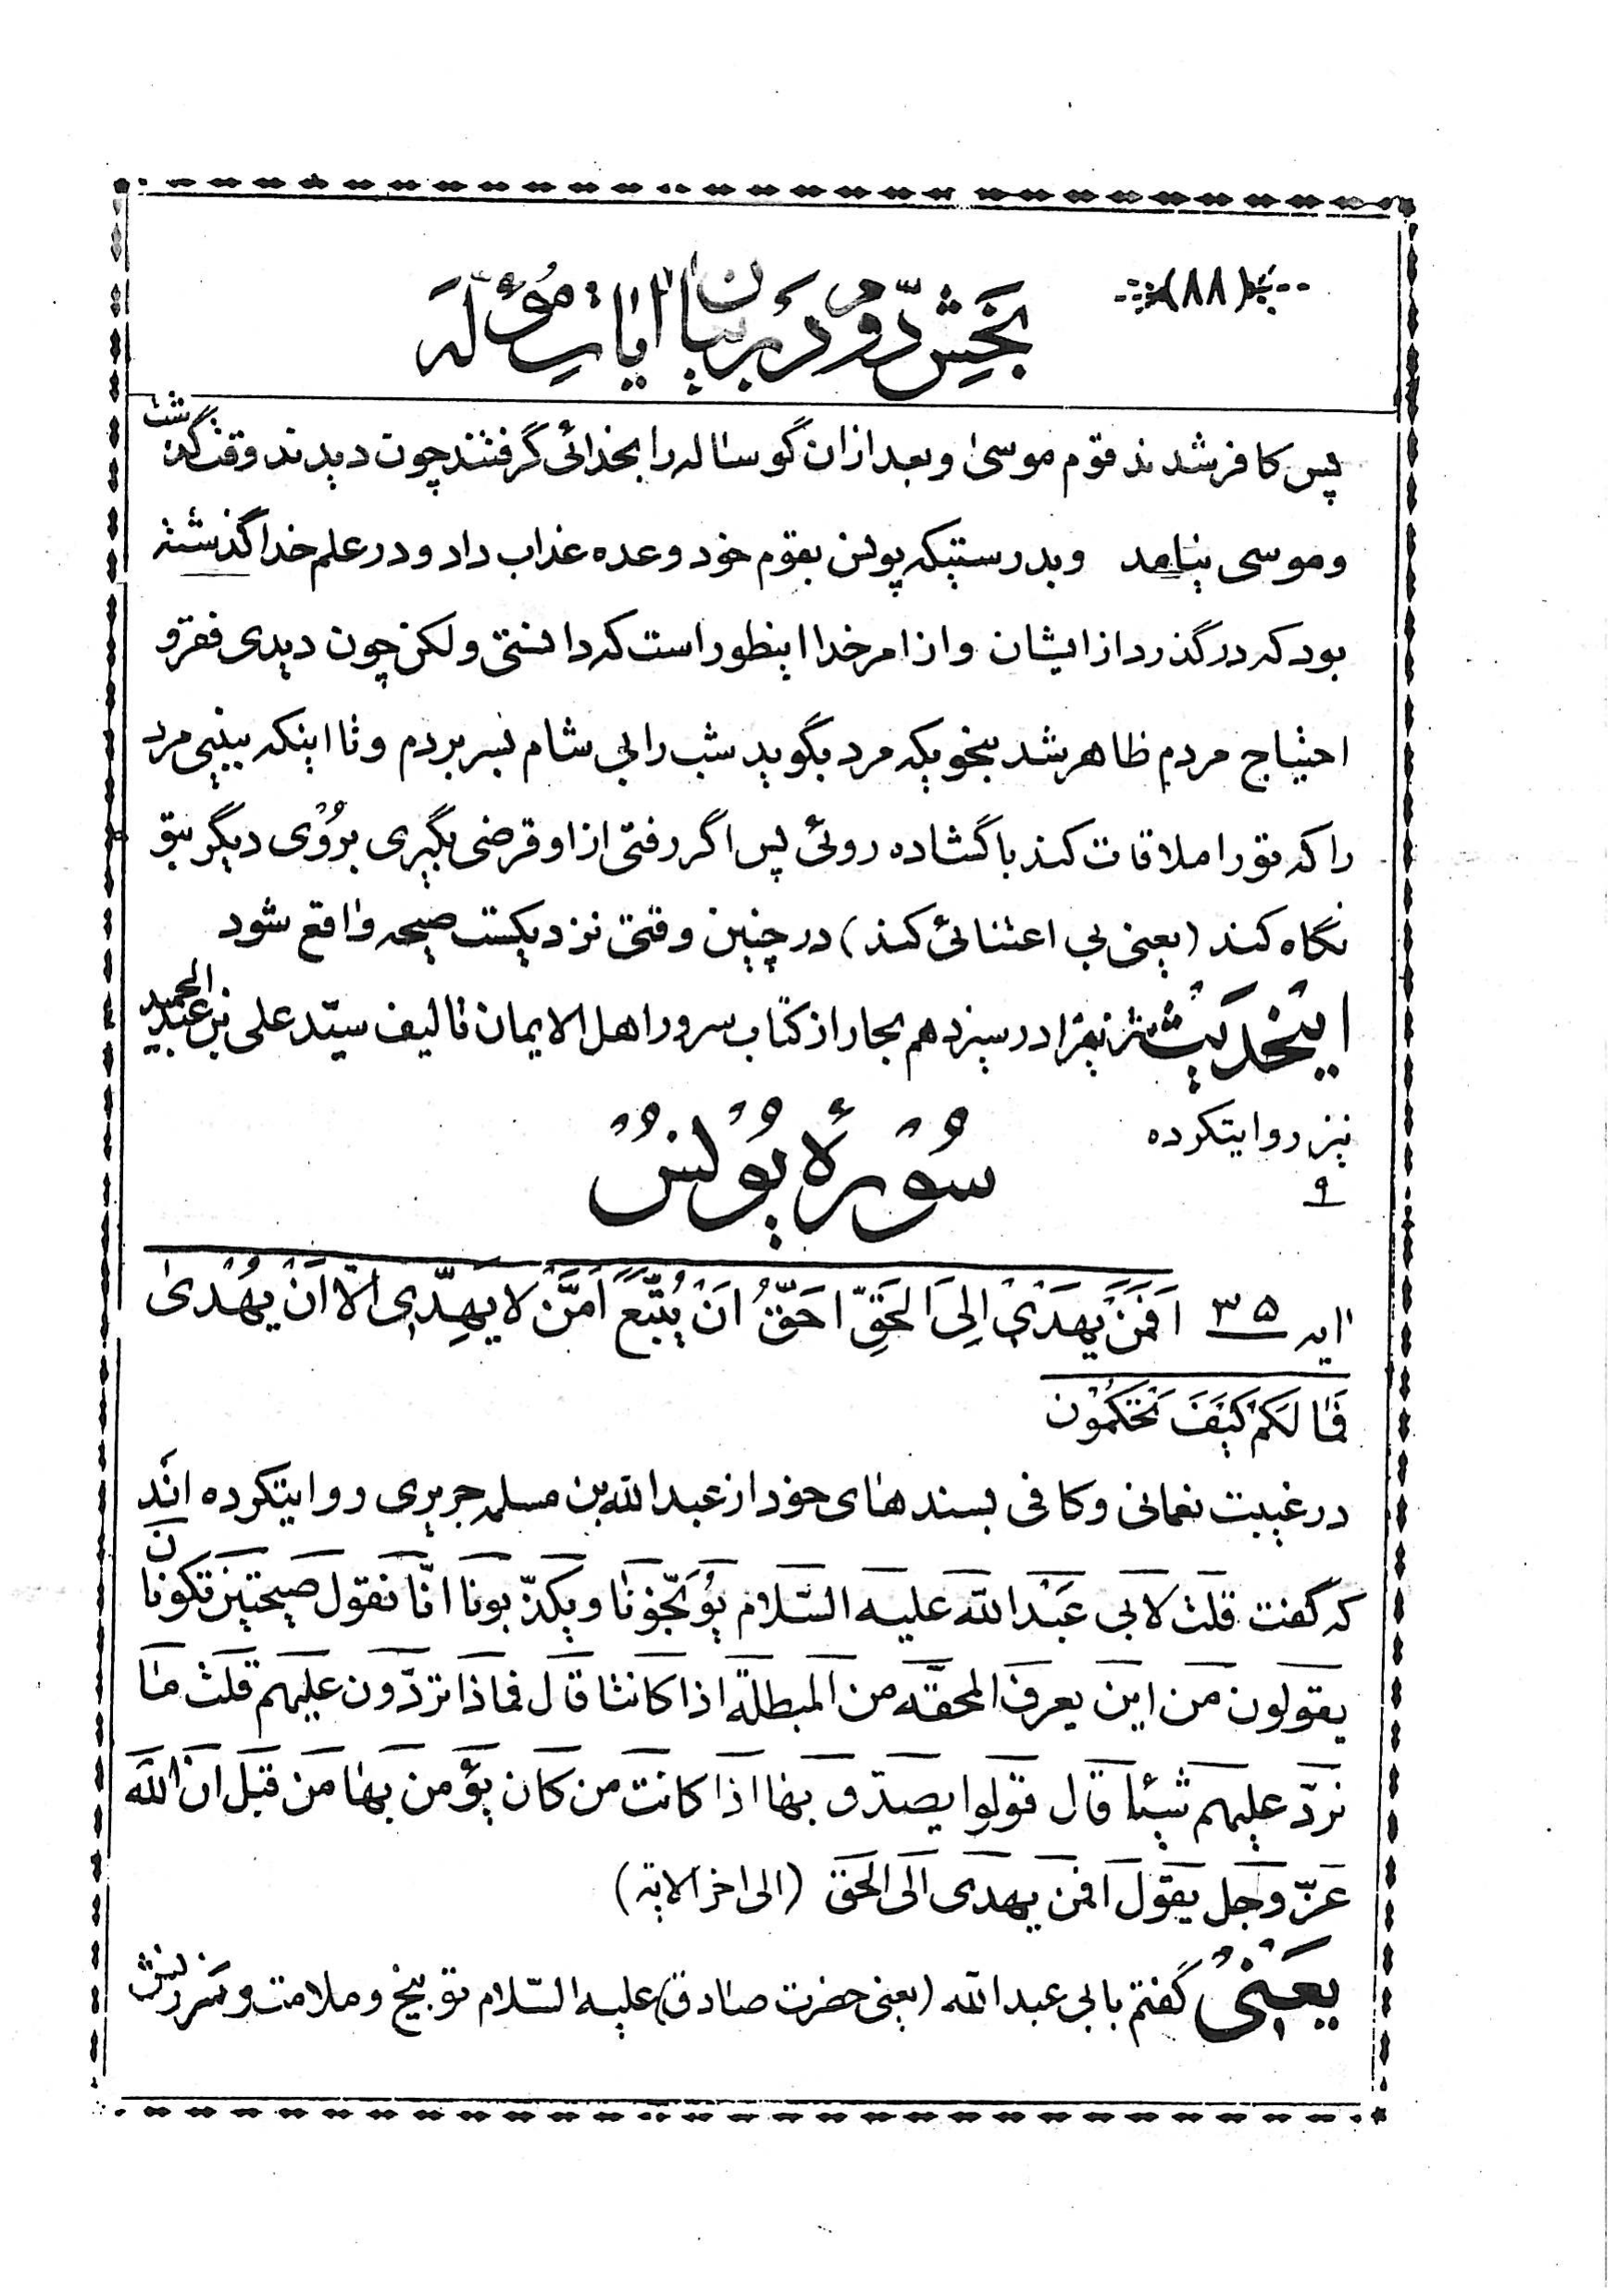 (۸۸)
بَخشِ دّوم دَر بیان ایاتِ مُؤلَه
پس کافر شدند قوم موسیٰ و بعد از ان گوساله را بخدائی گرفتند چون دیدند وقت گذشت
و موسی نیامد و بدرستیکه یونس بقوم خود وعده عذاب داد و در علم خدا گذشته
بود که درگذرد از ایشان و از امر خدا اینطور است که دانستی ولکن چون دیدی فقر و
احتیاج مردم ظاهر شد بنحویکه مرد بگوید شب را بی شام بسر بردم و تا اینکه ببینی مرد
را که تو را ملاقات کند با گشاده روئی پس اگر رفتی از او قرضی بگیری بروُی دیگر بتو
نگاه کند (یعنی بی اعتنائی کند) در چنین وقتی نزدیکست صیحه واقع شود
اینحدیث نیز در سیزدهم بحار از کتاب سرور اهل الایمان تالیف سیّد علی بن عبد الحمید
نیز روایتکرده
۹
سُورهٔ یُونُسْ
ایه ۳۵ اَفَمَنْ یَهْدی اِلیَ الحَقِّ اَحَقُّ اَنْ یُتَّبَعَ اَمَّنْ لا یَهِدّی اِلاّ اَنْ یُهْدیٰ
فَما لَکُمْ کَیْفَ تَحْکُمُون
در غیبت نعمانی و کافی بسندهای خود از عبدالله بن مسلمه جریری روایتکرده اند
که گفت قلت لابی عَبْدالله علیه السّلام یُوَبّخونا و یکذّبونا انّا نقول صیحتین تکونان
یقولون من این یعرف المحقّه من المبطلة اذا کانتا قال فماذا تردّون علیهم قلت ما
نردّ علیهم شیئا قال قولوا یصدّق بها اذا کانت من کان یؤمن بها من قبل ان الله
عزّ وجل یقول افمن یهدی الی الحق (الی اخر الایة)
یعَنْی گفتم بابی عبدالله (یعنی حضرت صادق) علیه السّلام توبیخ و ملامت و سرزنش